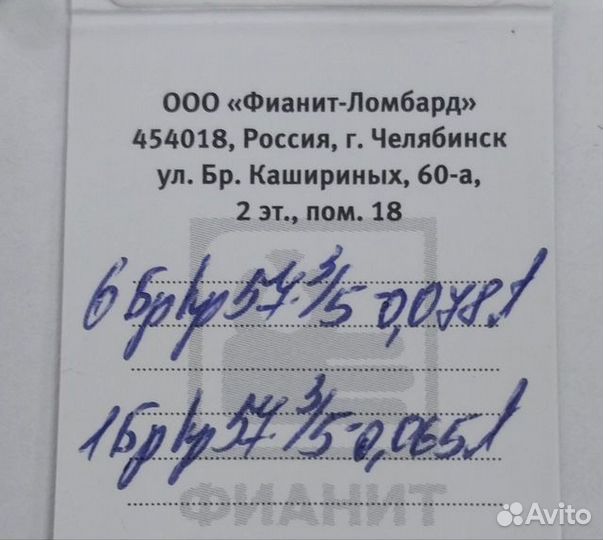 ООО «Фианит-Ломбард»
454018, Россия, г. Челябинск
ул. Бр. Кашириных, 60-а,
2 эт., пом. 18
6 Бр Кр 57 3/5-0,078
1 Бр Кр 57 3/5-0,065
ФИАНИТ
Avito